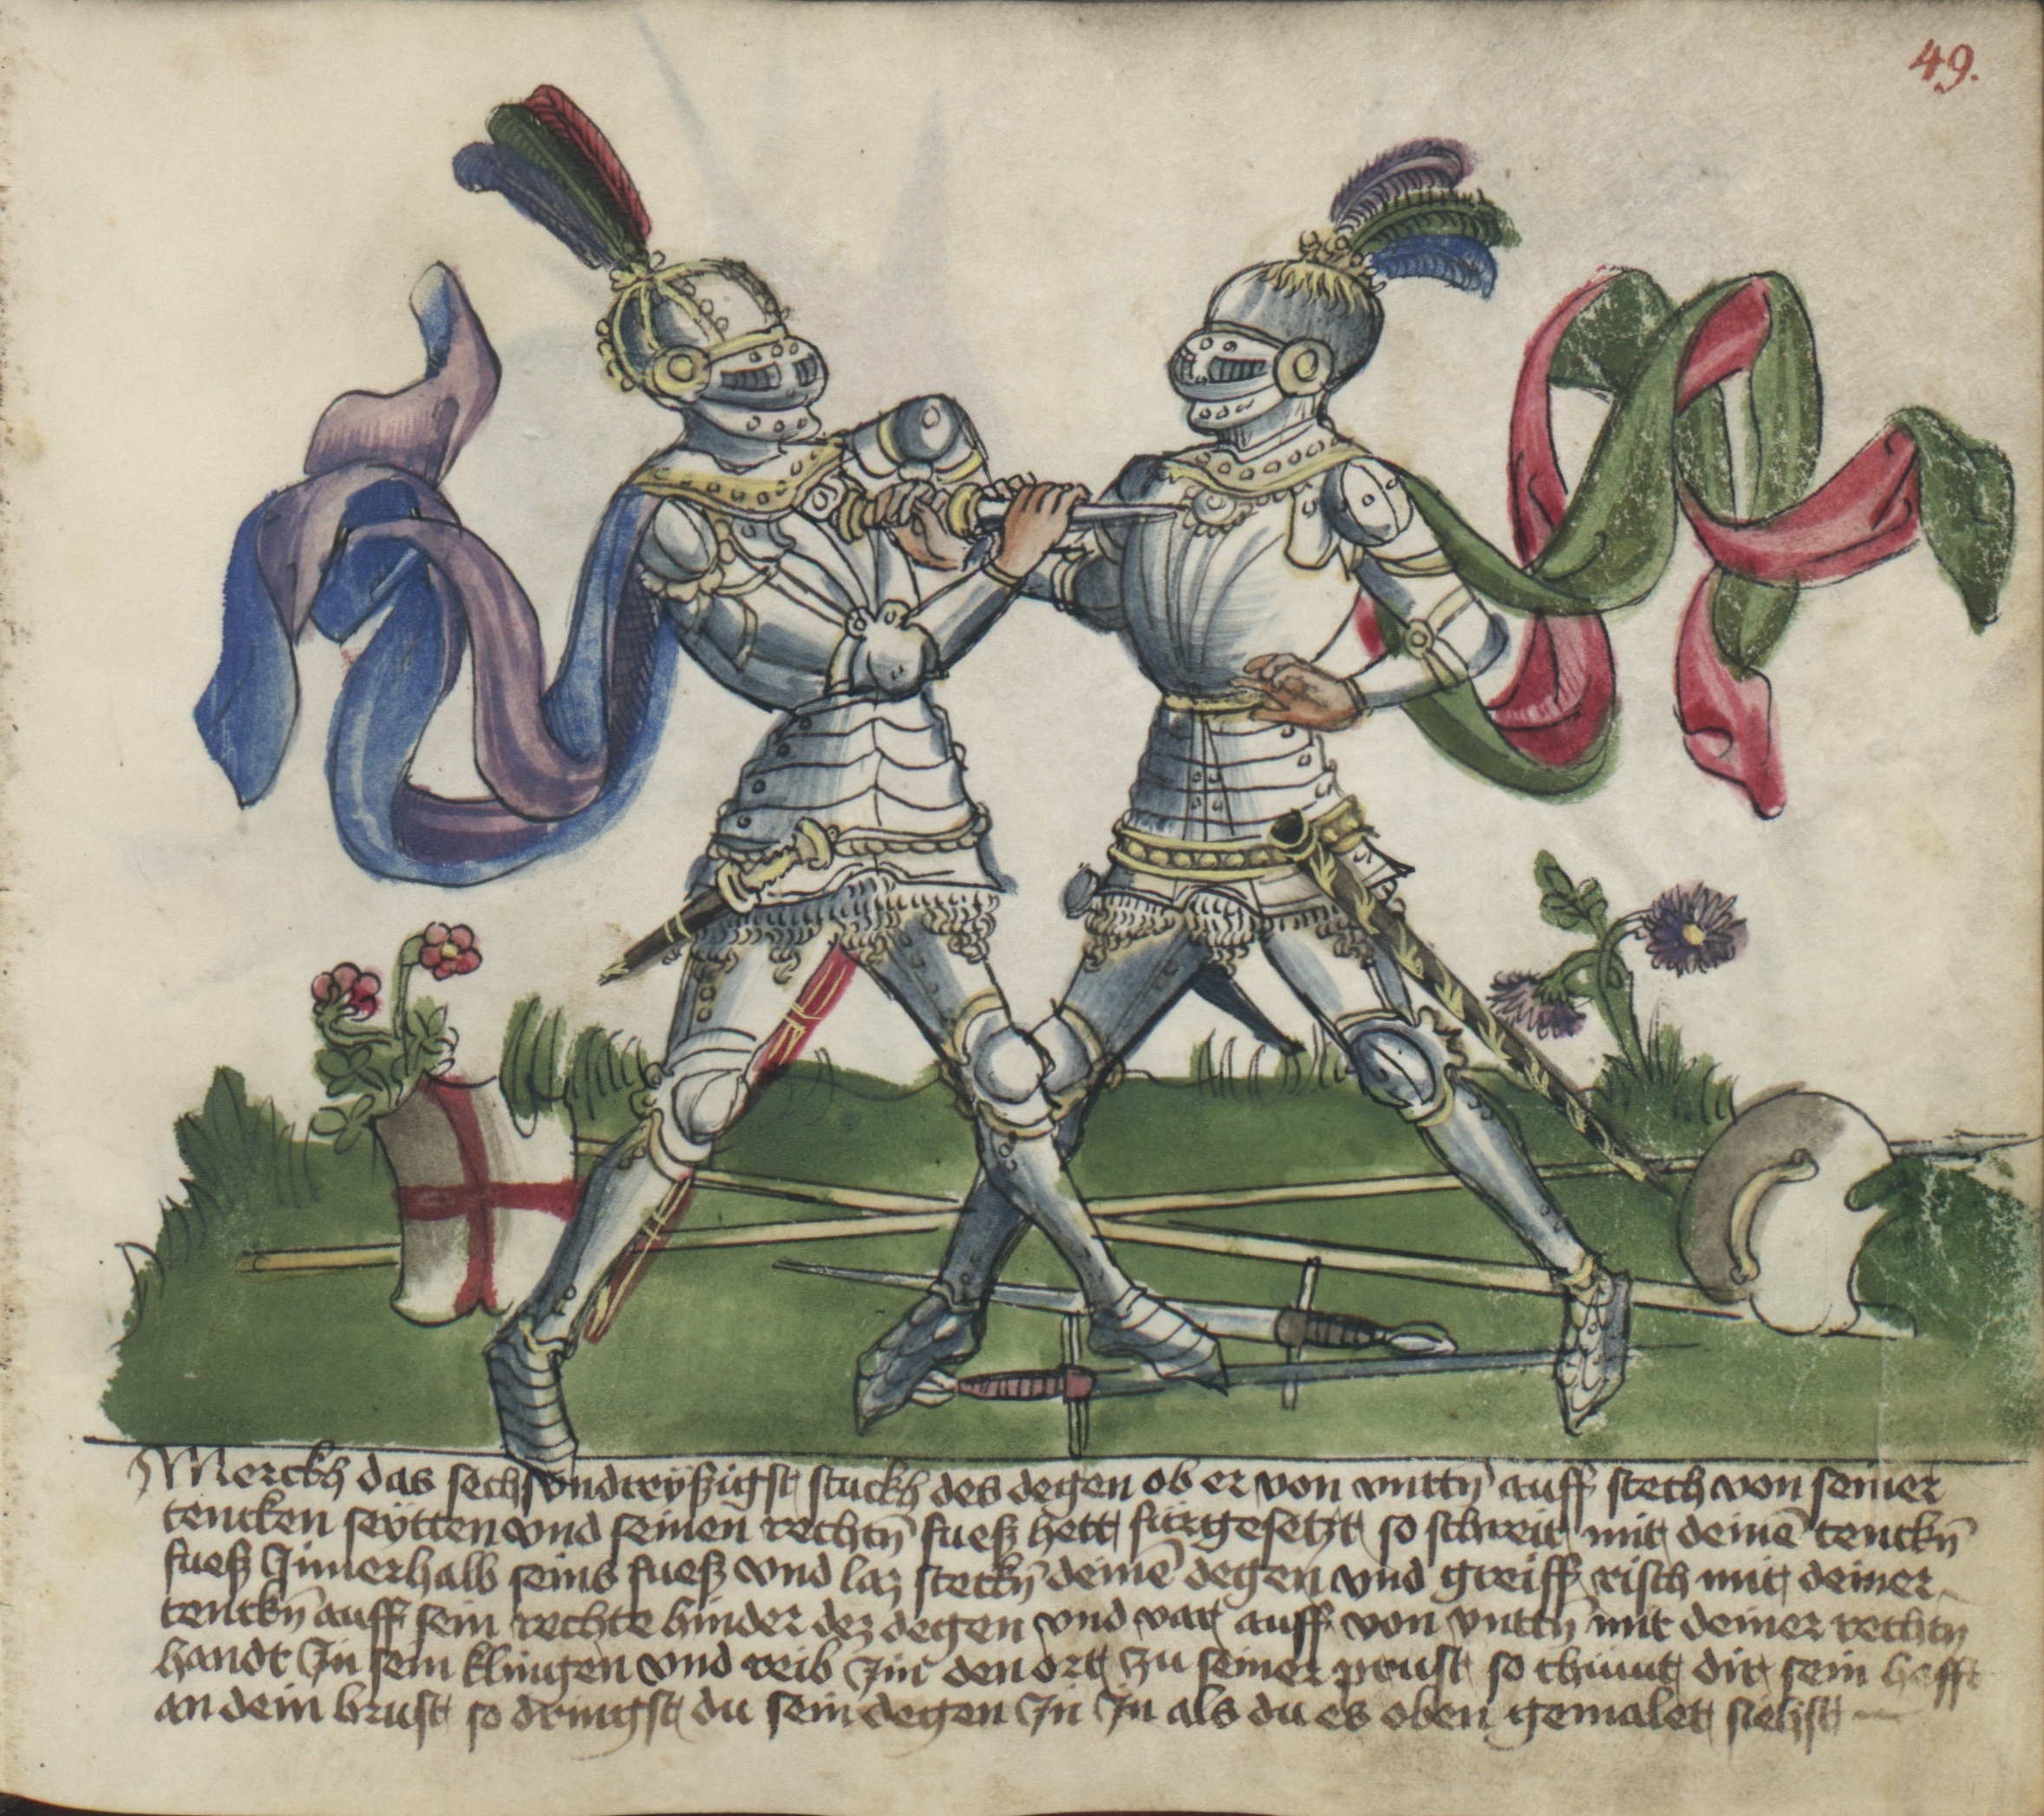 49.
Merckh das sechsundreyßigst stuckh des degen ob er von vnttñ auff stech von seiner
tencken seÿtten vnd seinen rechtñ fueß hett fürgesetzt so schreit mit deinē tenckñ
fueß Innerhalb seins fueß vnd laz steckñ deinē degen vnd greiff risch mit deiner
tenckñ auff sein rechte hinder dez degen vnd var auff von vnttñ mit deiner rechtñ
handt In sein klingen vnd reib Im den ort zu seiner prust so chumt dir sein hefft
an dein brust so dringst du sein degen In In als du es oben gemalet siehst